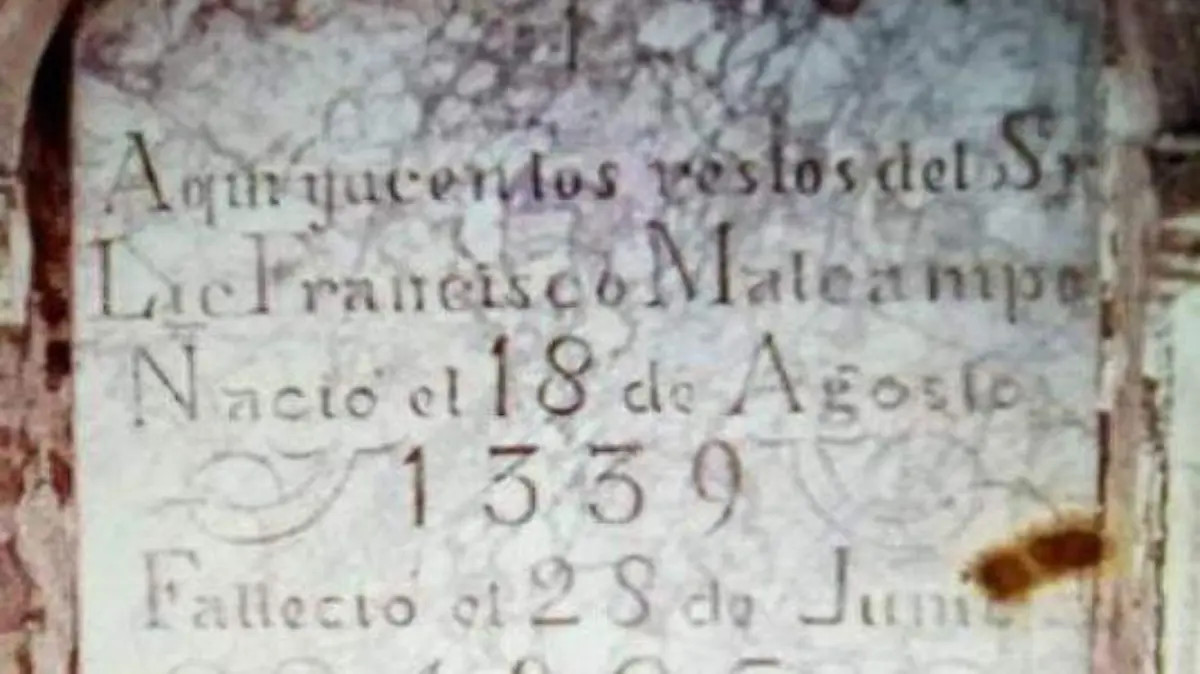 Aqui yacen los restos del Sr
Lic Francisco Malcampo
Nació el 18 de Agosto
1339
Falleció el 28 de